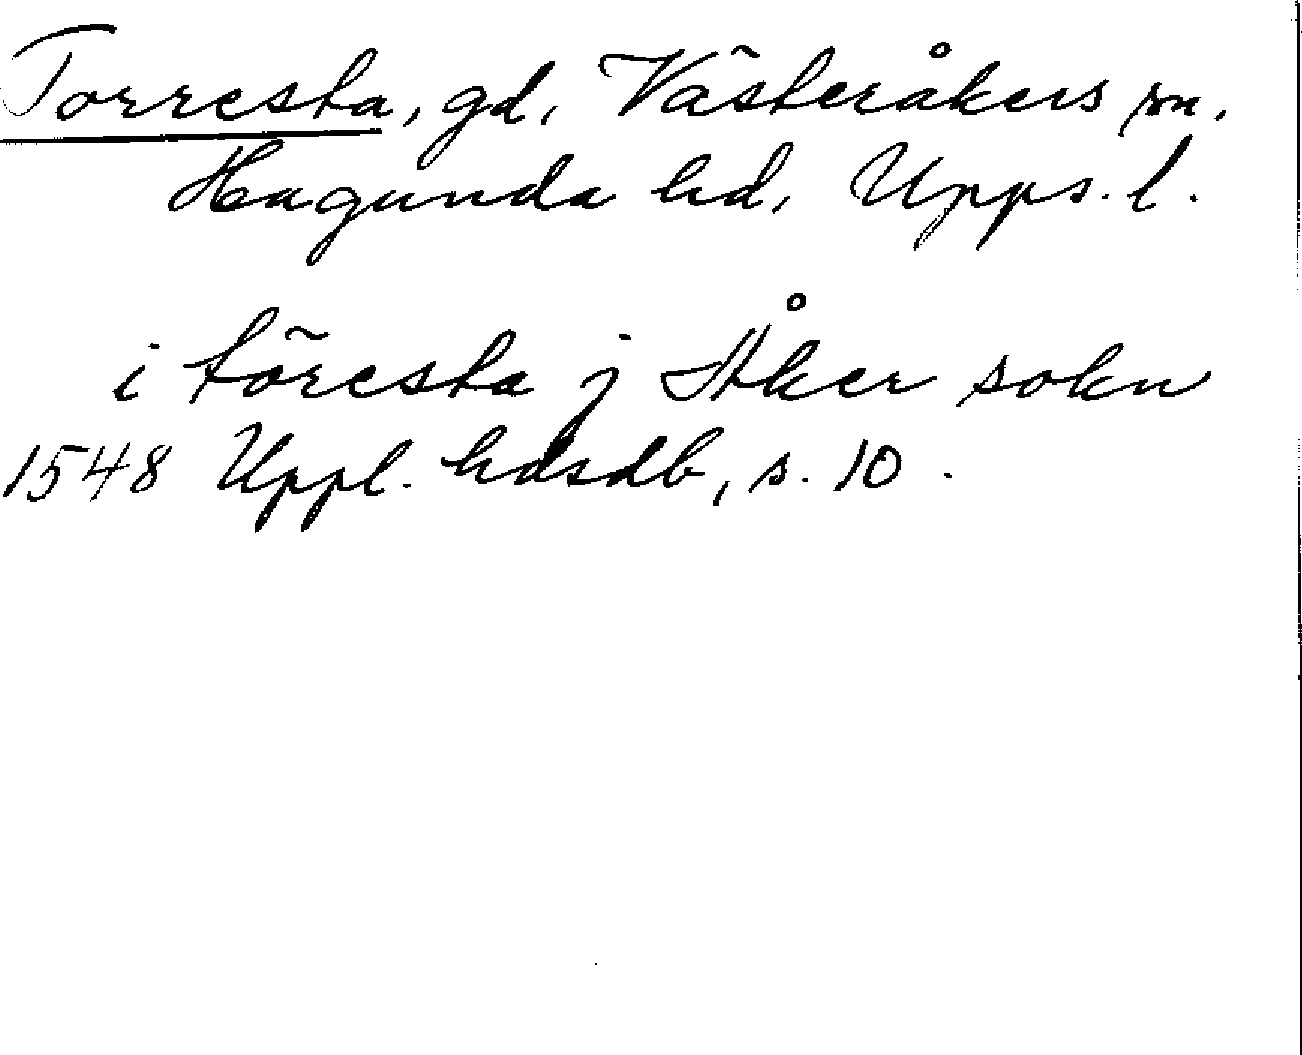 Torresta, gd, Västeråkers sn,
Hagunda hd, Upps. l.
i töresta j Åker sokn
1548 Uppl. hdsdb, s. 10.